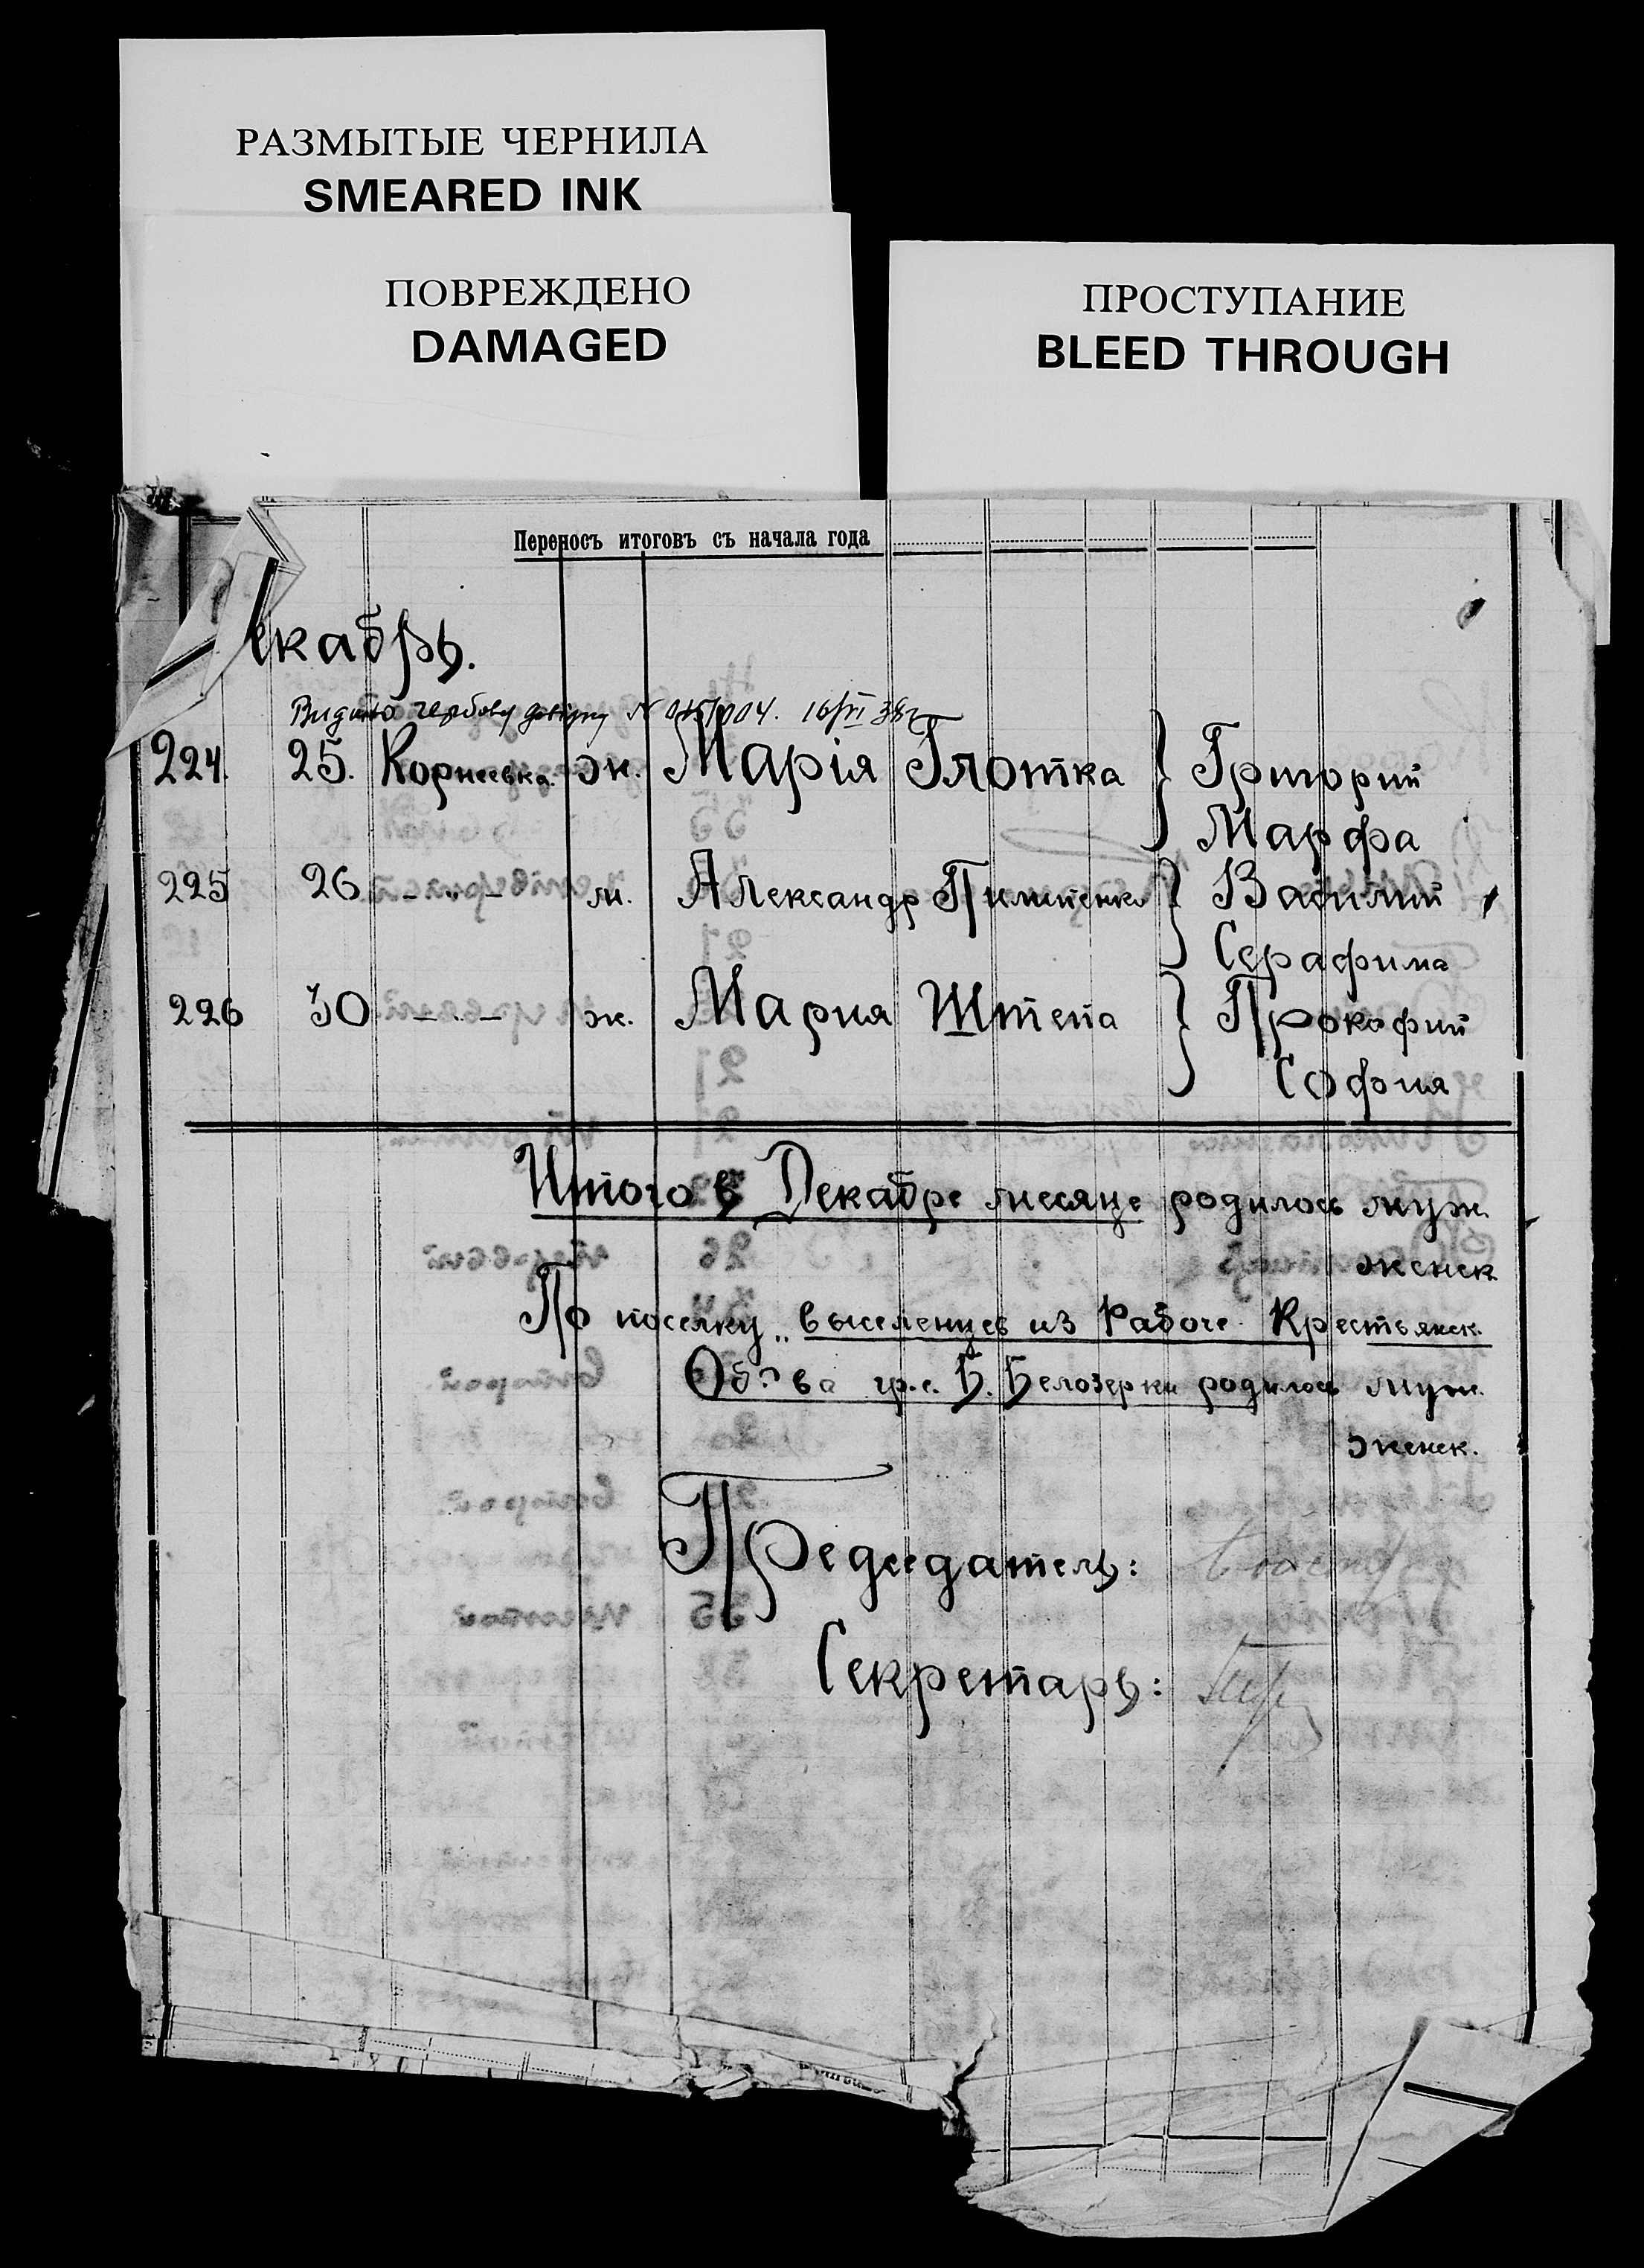 РАЗМЫТЫЕ ЧЕРНИЛА
SMEARED INK
ПОВРЕЖДЕНО
DAMAGED
ПРОСТУПАНИЕ
BLEED THROUGH
Переносъ итоговъ съ начала года
екабрь.
Видано 16/VI 38г
224. 25. Корнеевка. ж. Марія Глотка } Григорий
Марфа
225 26 — „ — м. Александр } Василий
Серафима
226 30 — „ — ж. Мария Штепа } Прокофий
София
Итого в Декабре месяце родилось муж.
женск.
По поселку „выселенцев из Рабоче Крестьянск.
Об-ва гр. с. Б. Белозерки родилось муж.
женск.
Председатель:
Секретарь: